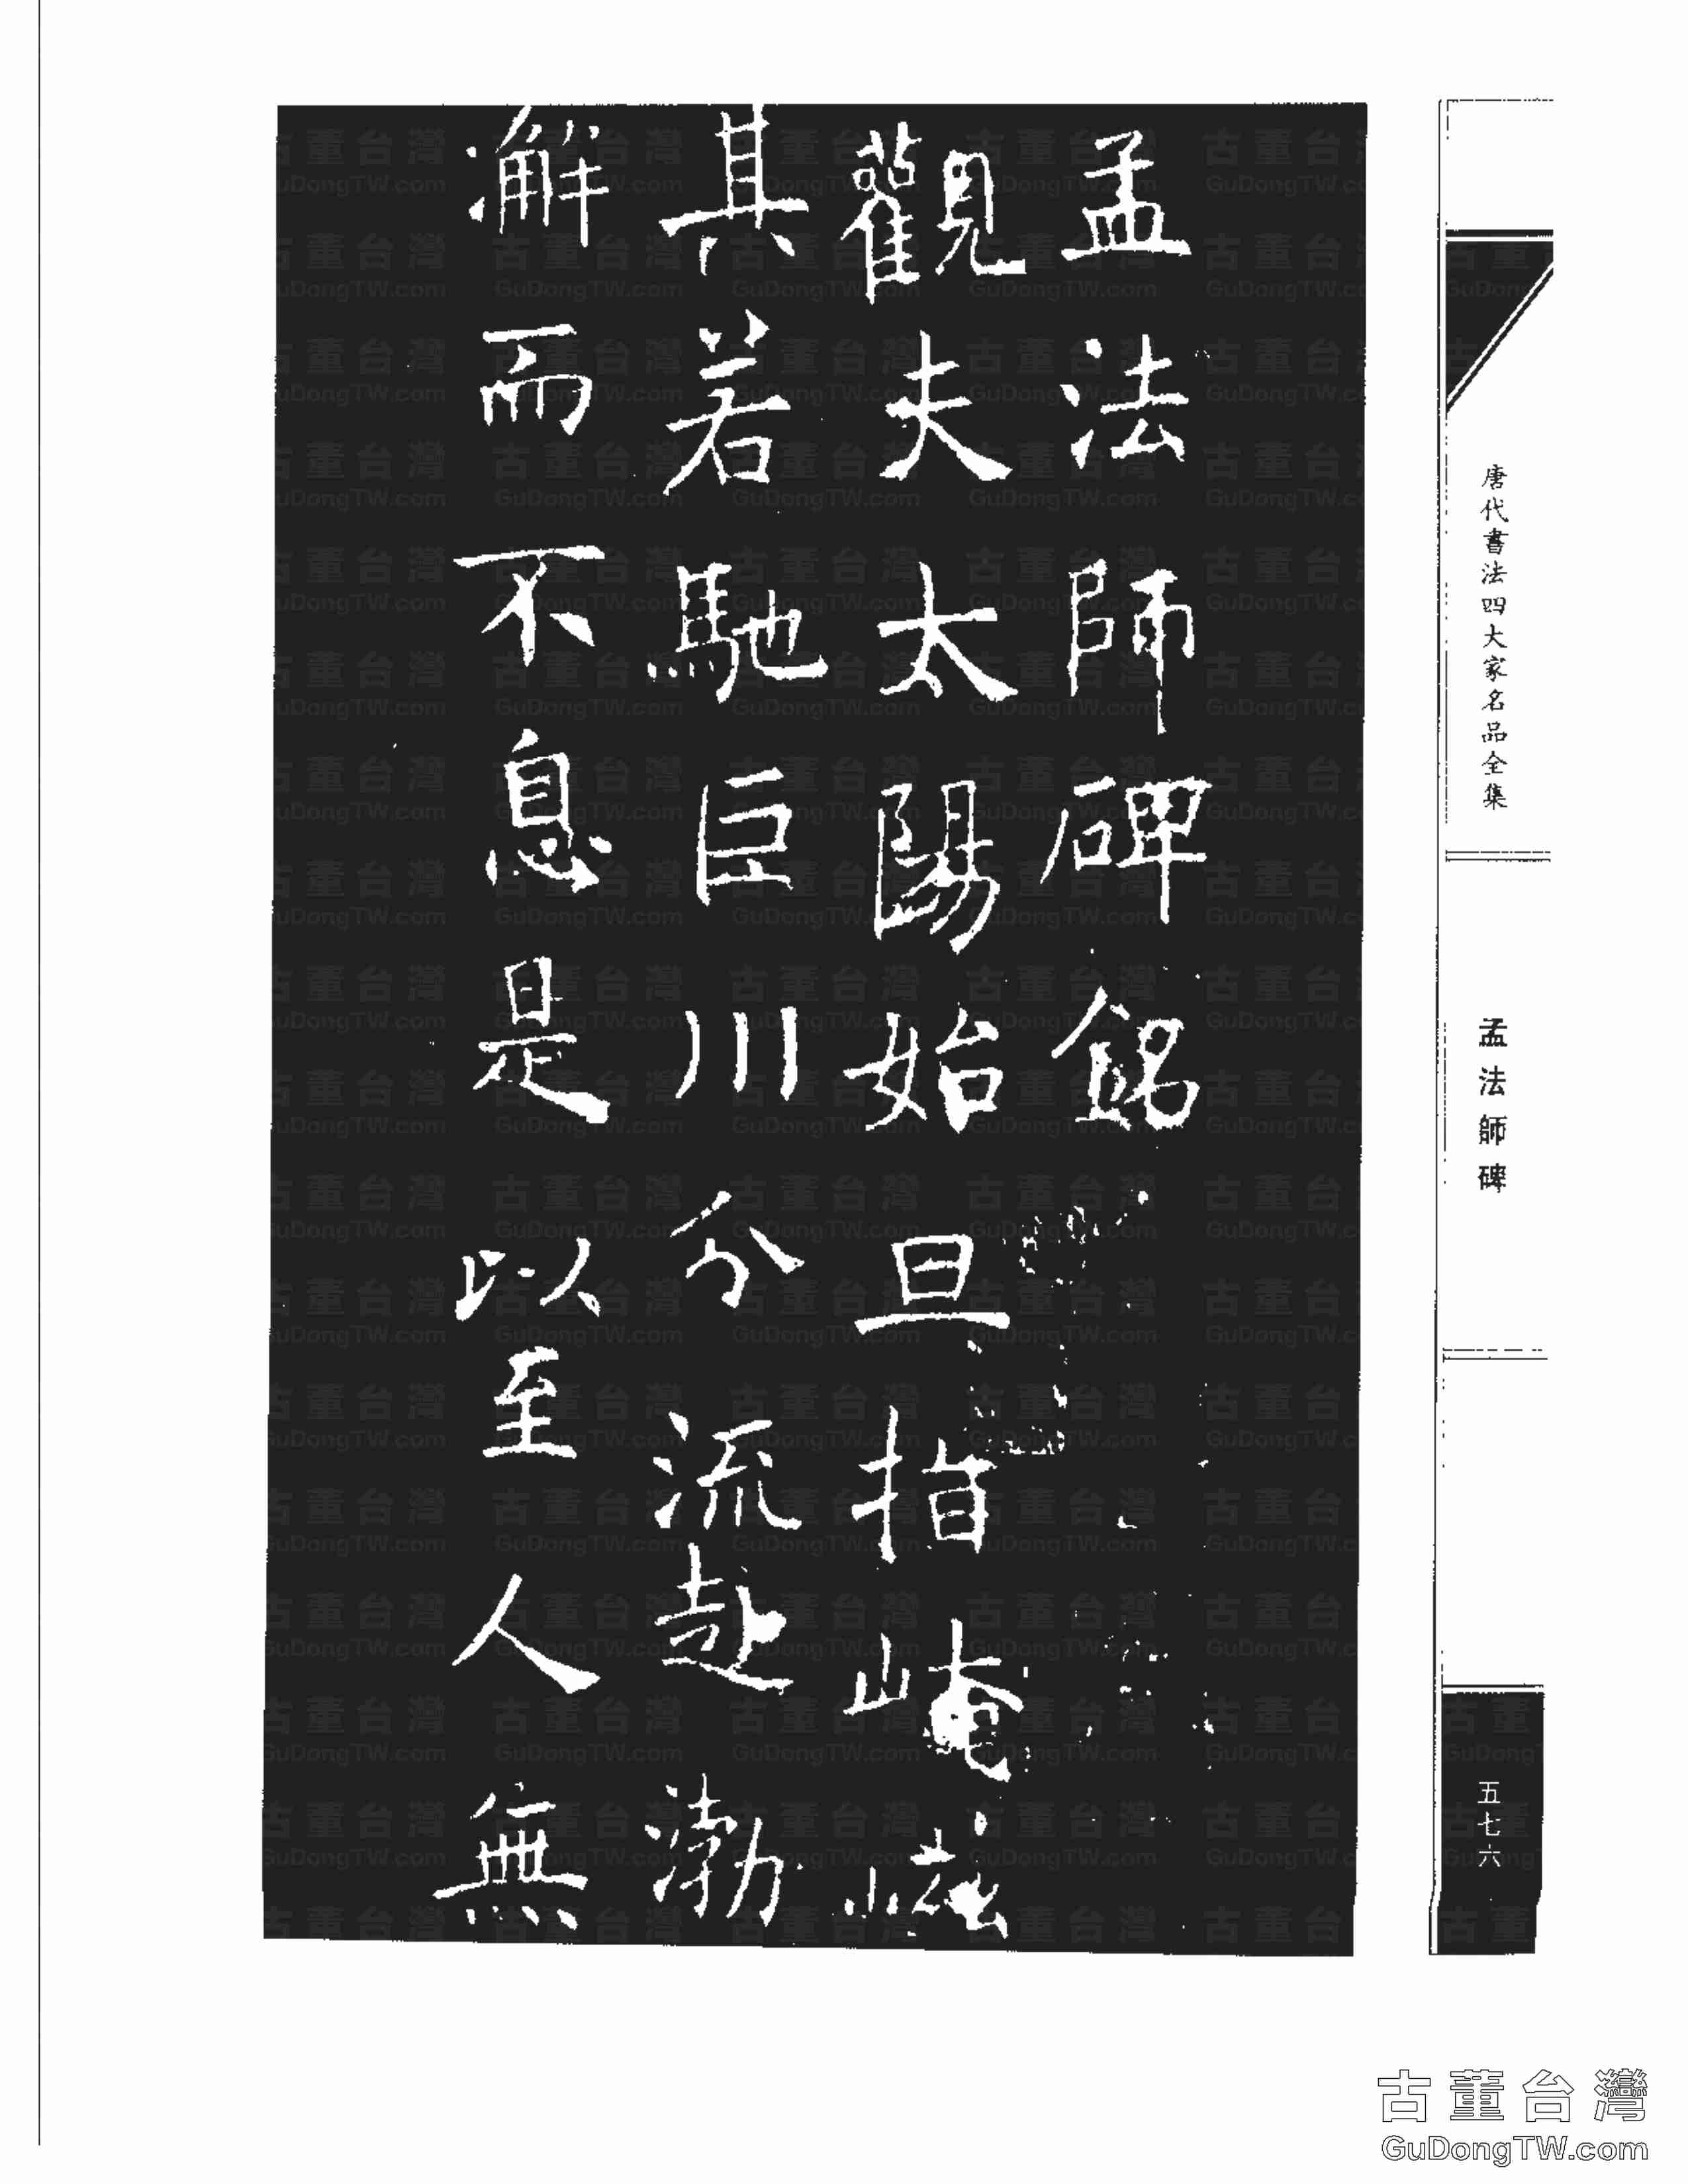 孟法師碑銘
觀夫太陽始旦指崦嵫
其若馳巨川分流赴渤
澥而不息是以至人無
唐代書法四大家名品全集
孟法師碑
五七六
古董台灣
GuDongTW.com